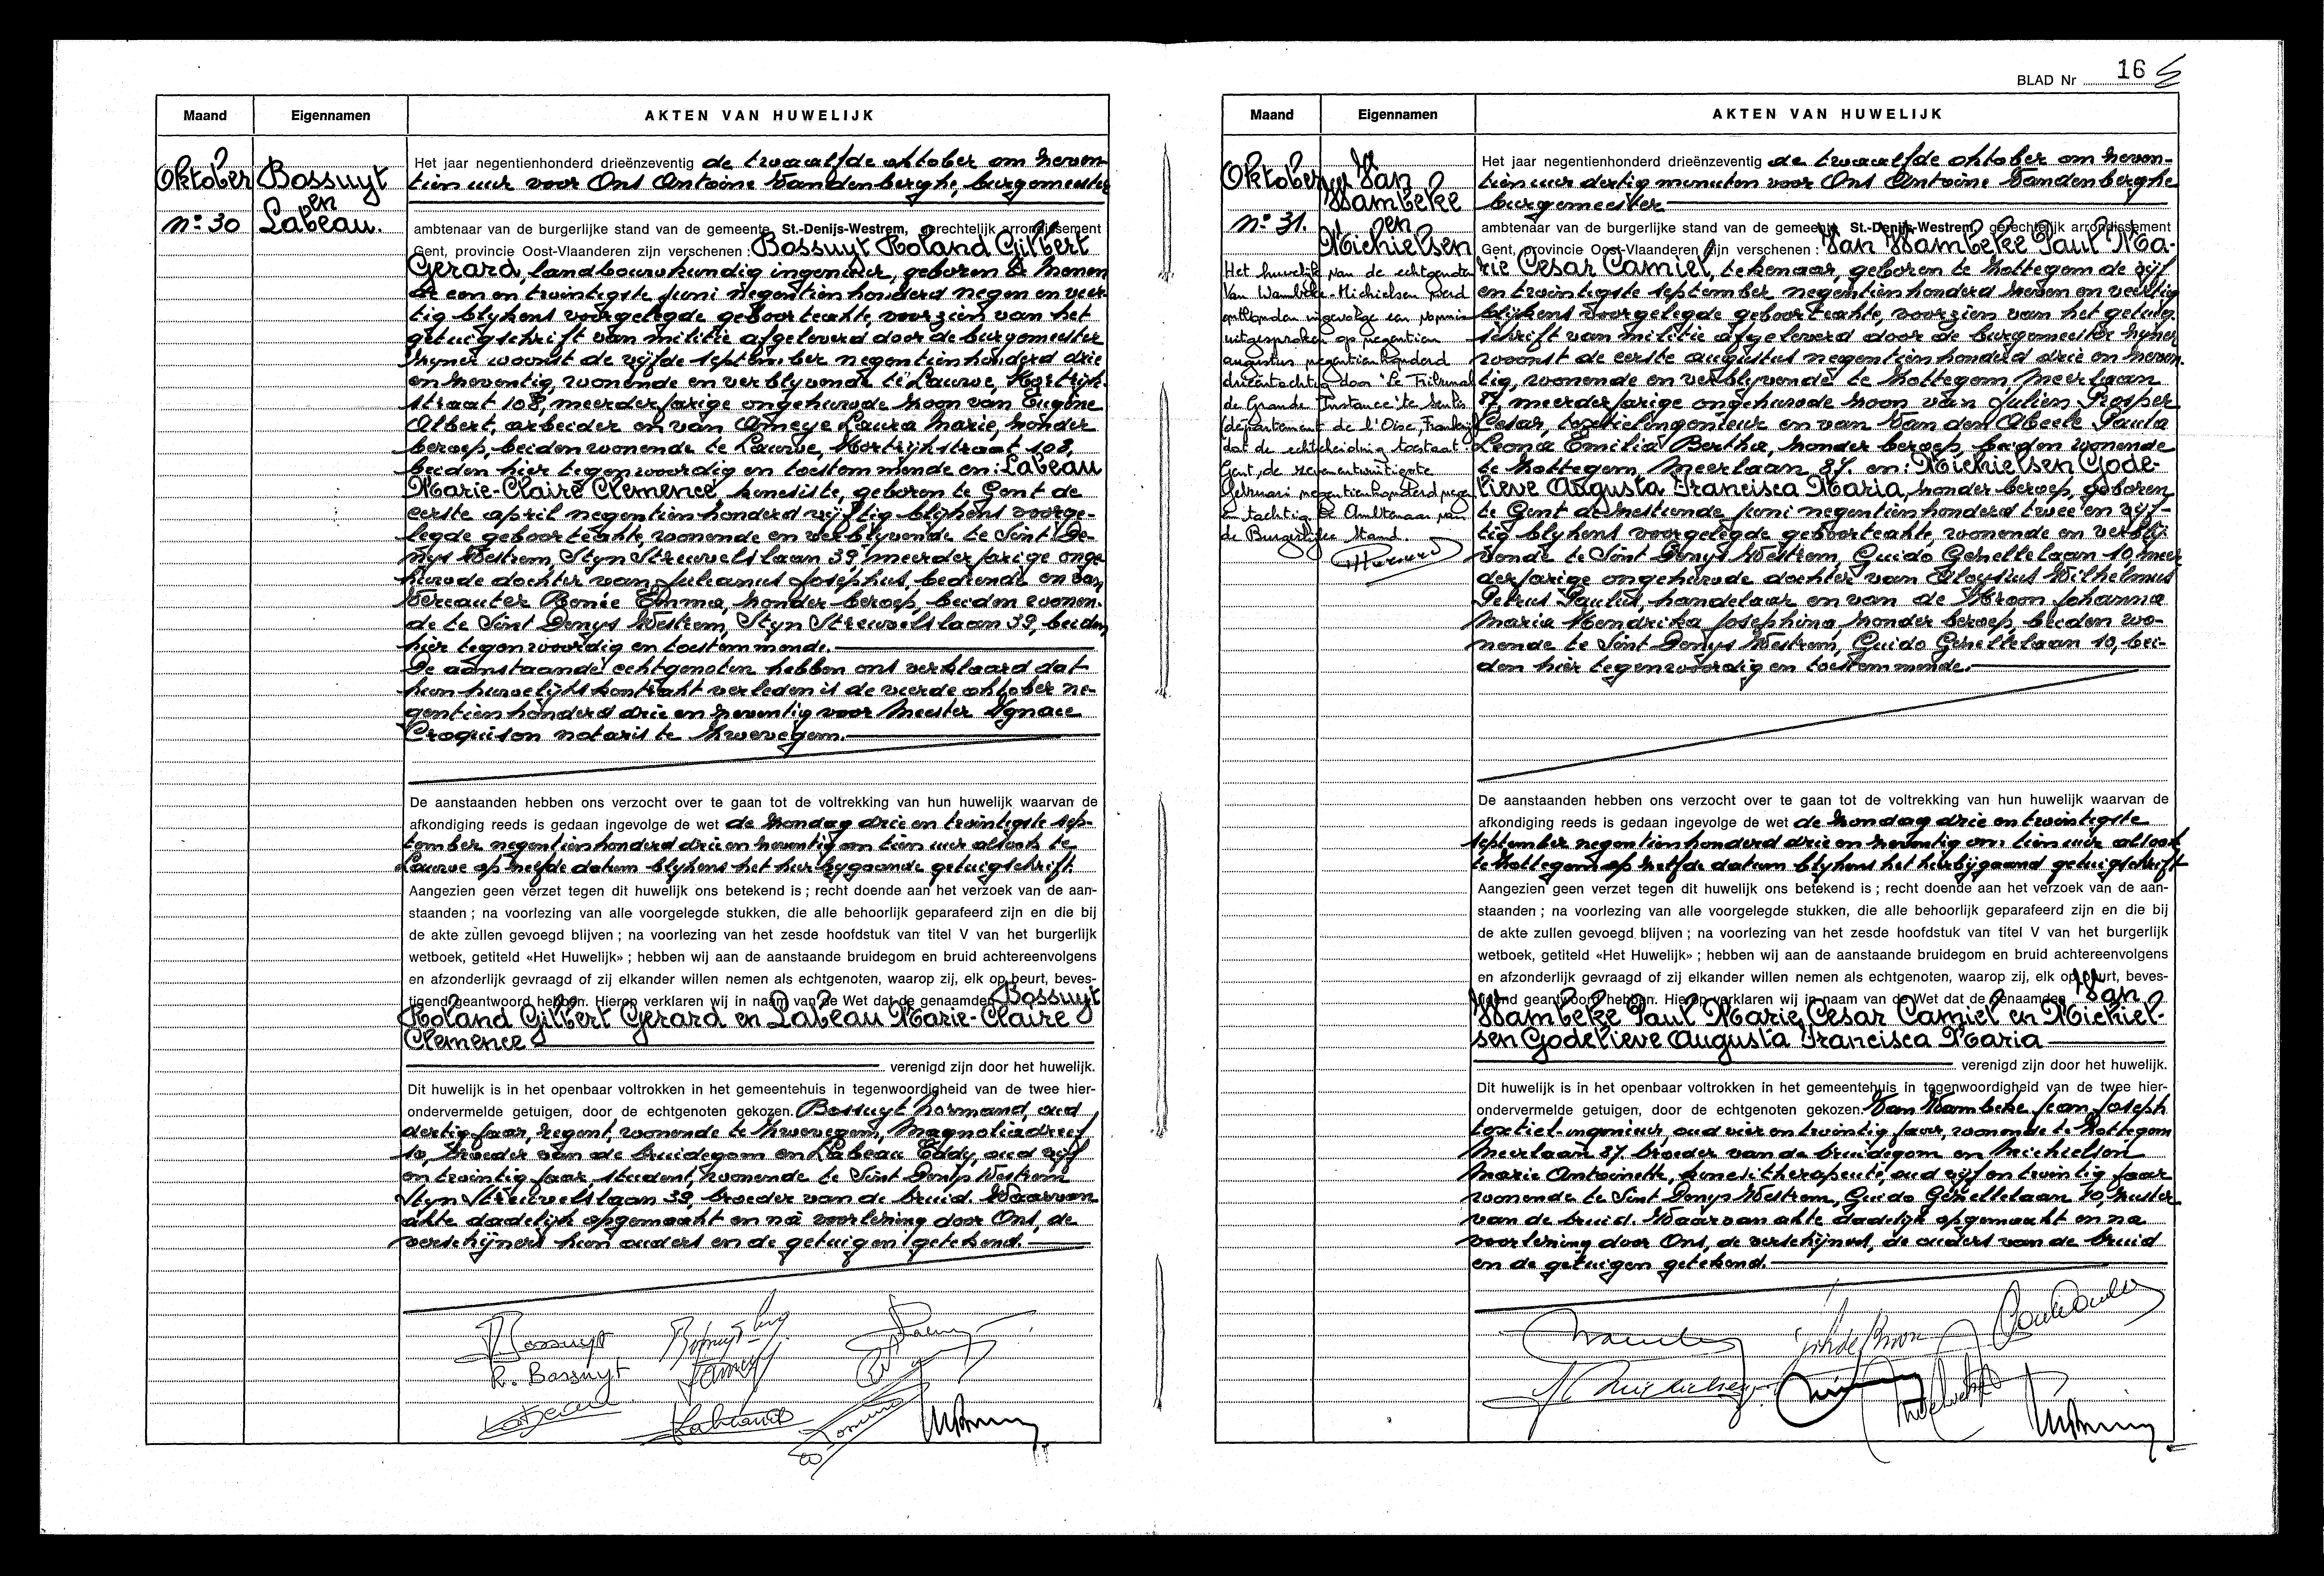 Maand
Eigennamen
AKTEN VAN HUWELIJK
Oktober
n° 30
Bossuyt
en
Labeau.
Het jaar negentienhonderd drieënzeventig de twaalfde oktober om neven-
tien uur voor Ons Antoine Vandenberghe, burgemeester
ambtenaar van de burgerlijke stand van de gemeente St.-Denijs-Westrem, gerechtelijk arrondissement
Gent, provincie Oost-Vlaanderen zijn verschenen : Bossuyt Roland Gilbert
Gerard, landbouwkundig ingenieur, geboren te Menen
de een en twintigste juni negentienhonderd negen en veer-
tig blijkens voorgelegde geboorteakte, voorzien van het
getuigschrift van militie afgeleverd door de burgemeester
zijner woonst de vijfde september negentienhonderd drie
en zeventig, wonende en verblijvende te Lauwe, Kortrijk-
straat 108, meerderjarige ongehuwde zoon van Eugène
Albert, arbeider en van Ameye Laura Marie, zonder
beroep, beiden wonende te Lauwe, Kortrijkstraat 108,
beiden hier tegenwoordig en toestemmende en: Labeau
Marie-Claire Clemence, kinesiste, geboren te Gent de
eerste april negentienhonderd vijftig blijkens voorge-
legde geboorteakte, wonende en verblijvende te Sint De-
nijs Westrem, Stijn Streuvelslaan 39, meerderjarige onge-
huwde dochter van Julianus Josephus, bediende en van
Vercauter Renée Emma, zonder beroep, beiden wonen-
de te Sint Denys Westrem, Styn Streuvelslaan 39, beiden
hier tegenwoordig en toestemmende.
De aanstaande echtgenoten hebben ons verklaard dat
hun huwelijkskontrakt verleden is de vierde oktober ne-
gentienhonderd drie en zeventig voor Meester Ignace
Croquison notaris te Zwevegem.
De aanstaanden hebben ons verzocht over te gaan tot de voltrekking van hun huwelijk waarvan de
afkondiging reeds is gedaan ingevolge de wet de zondag drie en twintigste sep-
tember negentienhonderd drie en zeventig om tien uur alsook te
Lauwe op zelfde datum blijkens het hierbygaande getuigschrift.
Aangezien geen verzet tegen dit huwelijk ons betekend is ; recht doende aan het verzoek van de aan-
staanden ; na voorlezing van alle voorgelegde stukken, die alle behoorlijk geparafeerd zijn en die bij
de akte zullen gevoegd blijven ; na voorlezing van het zesde hoofdstuk van titel V van het burgerlijk
wetboek, getiteld «Het Huwelijk» ; hebben wij aan de aanstaande bruidegom en bruid achtereenvolgens
en afzonderlijk gevraagd of zij elkander willen nemen als echtgenoten, waarop zij, elk op beurt, beves-
tigend geantwoord hebben. Hierop verklaren wij in naam van de Wet dat de genaamden Bossuyt
Roland Gilbert Gerard en Labeau Marie-Claire
Clemence
verenigd zijn door het huwelijk.
Dit huwelijk is in het openbaar voltrokken in het gemeentehuis in tegenwoordigheid van de twee hier-
ondervermelde getuigen, door de echtgenoten gekozen. Bossuyt Normand, oud
dertig jaar, regent, wonende te Zwevegem, Magnoliadreef
10, broeder van de bruidegom en Labeau Eddy, oud vijf
en twintig jaar, student, wonende te Sint Denijs Westrem
Styn Streuvelslaan 39, broeder van de bruid. Waarvan
akte dadelijk opgemaakt en na voorlezing door Ons, de
verschijners hun ouders en de getuigen getekend.
R. Bossuyt
BLAD Nr 16
Maand
Eigennamen
AKTEN VAN HUWELIJK
Oktober
n° 31.
Van
Wambeke
en
Michielsen
Het huwelijk van de echtgenoten
Van Wambeke-Michielsen werd
ontbonden ingevolge een vonnis
uitgesproken op negentien
augustus negentienhonderd
drieëntachtig door "Le Tribunal
de Grande Instance" te Senlis
département de l'Oise, Frankrijk
dat de echtscheiding toestaat.
Gent, de zevenentwintigste
februari negentienhonderd negen
en tachtig De Ambtenaar van
de Burgerlijke Stand.
Het jaar negentienhonderd drieënzeventig de twaalfde oktober om zeven-
tien uur dertig minuten voor Ons Antoine Vandenberghe
burgemeester
ambtenaar van de burgerlijke stand van de gemeente St.-Denijs-Westrem, gerechtelijk arrondissement
Gent, provincie Oost-Vlaanderen zijn verschenen : Van Wambeke Paul Ma-
rie Cesar Camiel, tekenaar, geboren te Zottegem de vijf
en twintigste september negentienhonderd zeven en veertig
blijkens voorgelegde geboorteakte, voorzien van het getuig-
schrift van militie afgeleverd door de burgemeester zijner
woonst de eerste augustus negentienhonderd drie en zeven-
tig, wonende en verblijvende te Zottegem Meerlaan
87, meerderjarige ongehuwde zoon van Julien Prosper
Cesar, textielingenieur en van Van den Abeele Paula
Leona Emilia Bertha, zonder beroep, beiden wonende
te Zottegem, Meerlaan 87. en: Michielsen Gode-
lieve Augusta Francisca Maria, zonder beroep, geboren
te Gent de zestiende juni negentienhonderd twee en vijf-
tig blijkens voorgelegde geboorteakte, wonende en verblij-
vende te Sint Denys Westrem, Guido Gezellelaan 10, meer-
derjarige ongehuwde dochter van Aloysius Wilhelmus
Petrus Paulus, handelaar en van de Kroon Johanna
Maria Hendrika Josephina zonder beroep, beiden wo-
nende te Sint Denys Westrem, Guido Gezellelaan 10, bei-
den hier tegenwoordig en toestemmende.
De aanstaanden hebben ons verzocht over te gaan tot de voltrekking van hun huwelijk waarvan de
afkondiging reeds is gedaan ingevolge de wet de zondag drie en twintigste
september negentienhonderd drie en zeventig om tien uur alsook
te Zottegem op zelfde datum blijkens het hierbijgaand getuigschrift
Aangezien geen verzet tegen dit huwelijk ons betekend is ; recht doende aan het verzoek van de aan-
staanden ; na voorlezing van alle voorgelegde stukken, die alle behoorlijk geparafeerd zijn en die bij
de akte zullen gevoegd blijven ; na voorlezing van het zesde hoofdstuk van titel V van het burgerlijk
wetboek, getiteld «Het Huwelijk» ; hebben wij aan de aanstaande bruidegom en bruid achtereenvolgens
en afzonderlijk gevraagd of zij elkander willen nemen als echtgenoten, waarop zij, elk op beurt, beves-
tigend geantwoord hebben. Hierop verklaren wij in naam van de Wet dat de genaamden Van
Wambeke Paul Marie Cesar Camiel en Michiel-
sen Godelieve Augusta Francisca Maria
verenigd zijn door het huwelijk.
Dit huwelijk is in het openbaar voltrokken in het gemeentehuis in tegenwoordigheid van de twee hier-
ondervermelde getuigen, door de echtgenoten gekozen. Van Wambeke Jean Joseph
textiel-ingenieur, oud vier en twintig jaar, wonende te Zottegem
Meerlaan 87. broeder van de bruidegom en Michielsen
Marie Antoinette, kinesitherapeute, oud vijf en twintig jaar
wonende te Sint Denys Westrem, Guido Gezellelaan 10, zuster
van de bruid. Waarvan akte dadelijk opgemaakt en na
voorlezing door Ons, de verschijners, de ouders van de bruid
en de getuigen getekend.